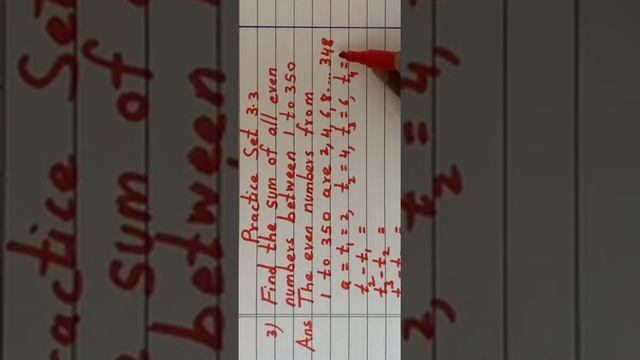 Practice Set 3.3
3) Find the sum of all even
numbers between 1 to 350
Ans The even numbers from
1 to 350 are 2, 4, 6, 8.... 348
a = t₁ = 2, t₂ = 4, t₃ = 6, t₄ =
t₂ - t₁ =
t₃ - t₂ =